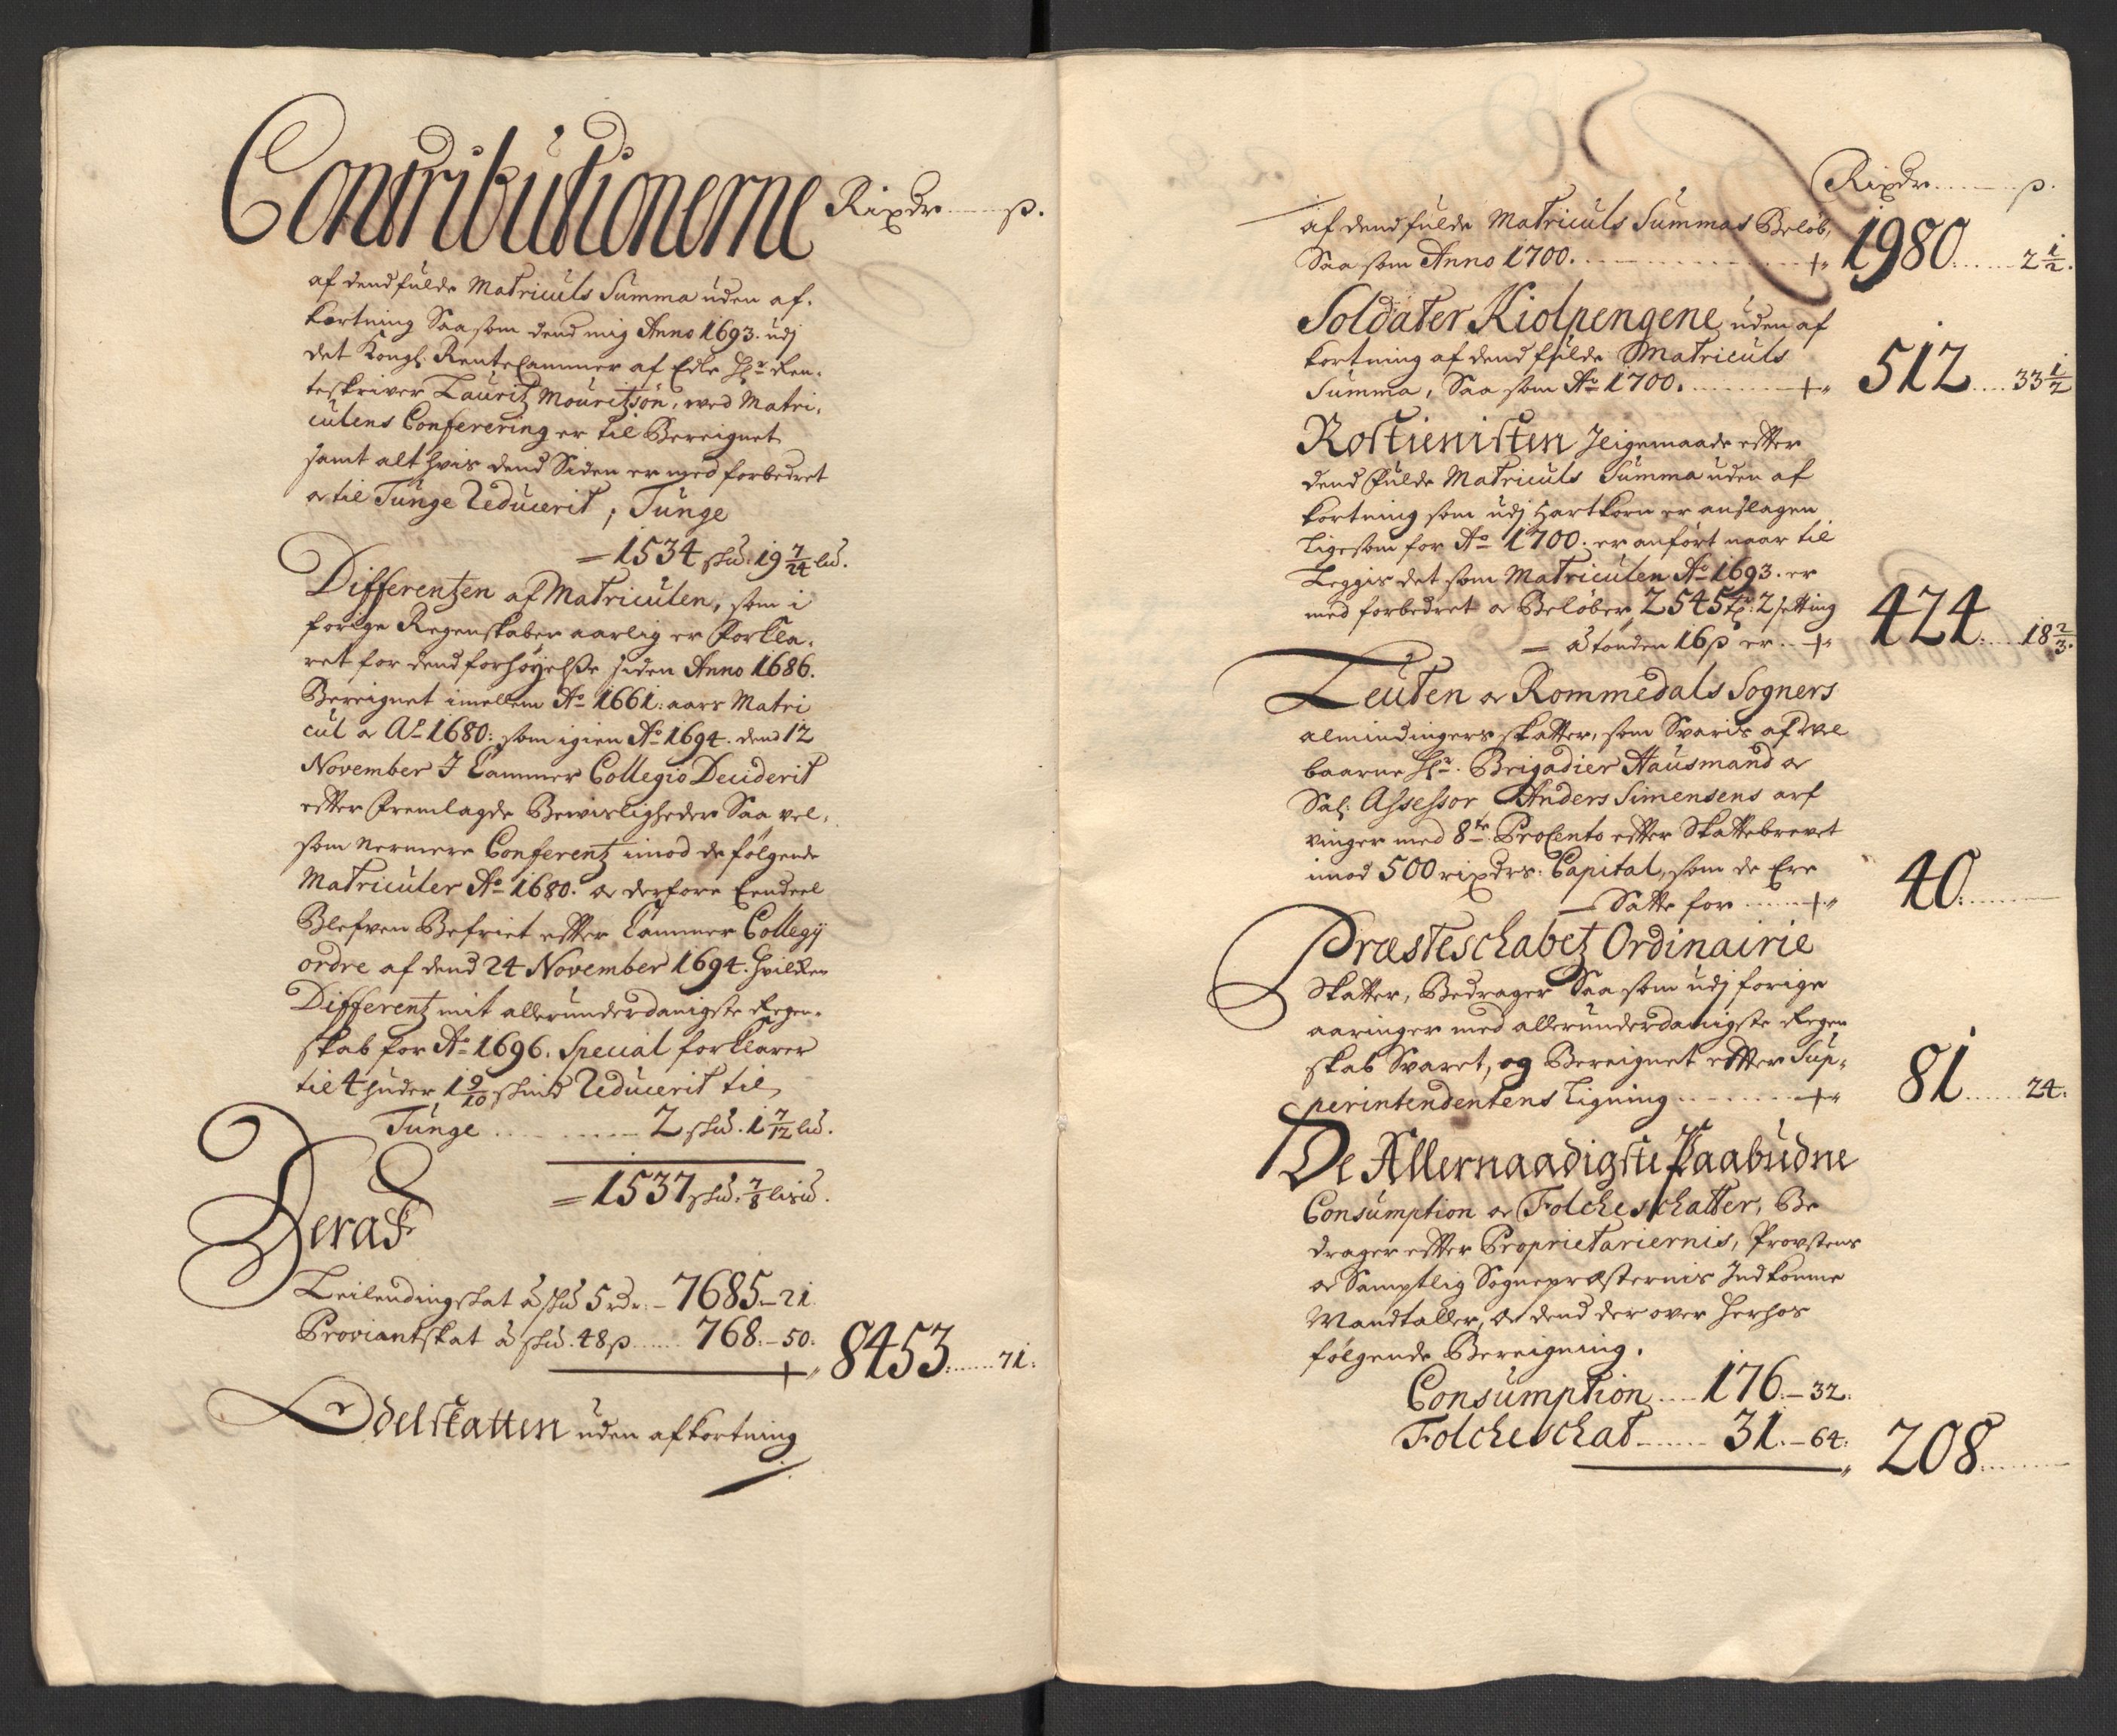 Contributionerne Rixdr ..... ß.
af dend fulde Matriculs Summa uden af-
kortning Saasom dend mig Anno 1693. udj
det Kongl: RenteCammer af Edle Hr: Ren-
teskriver Lauritz Mouritzsön, wed Matri-
culens Conferering er til Bereignet
samt alt hvis dend Siden er med forbedret
oc til Tunge Reducerit, Tunge
= 1534 skd. 19 7/24 lid.
Differentzen af Matriculen, som i
forige Regenskaber aarlig er Forkla-
ret for dend forhøyelße siden Anno 1686.
Bereignet imellem Ao 1661: aars Matri
cul oc Ao 1680: som igien Ao 1694. dend 12
November J Cammer Collegio Deciderit
effter Fremlagde Bewisligheder Saa vel-
som Nermere Conferentz imod de følgende
Matriculer Ao 1680. oc derfore Eendeel
Blefven Befriet effter Cammer Collegij
ordre af dend 24 November 1694. Hvilken
Differentz mit allerunderdanigste Regen-
skab for Ao 1696. Special forklarer
til 4 huder 1 9/10 skind Reducerit til
Tunge ......... 2 skd. 1 7/12 lid.
= 1537 skd. 7/8 lisid.
Deraf
Leilendingskat â skd 5 rdr: – 7685 – 21
Proviantskat â skd. 48 ß ..... 768 – 50:
8453 ..... 71:
Odelskatten uden afkortning
Rixdr ........ ß.
af dend fulde Matriculs Summas Beløb,
Saasom Anno 1700. ......... 1980 ..... 2 1/2.
Soldater Kiolpengene uden af
kortning af dend fulde Matriculs
Summa, Saasom Ao 1700. ........ 512 .... 33 1/2
Rostienisten Jligemaade effter
dend Fulde Matriculs Summa uden af
kortning som udj Hartkorn er anslagen
Ligesom for Ao 1700. er anført naar til
Leggis det som Matriculen Ao 1693. er
med forbedret oc Beløber, 2545 tr: 2 setting
= â tonden 16 ß er .. 424 .... 18 2/3.
Leuten oc Rommedals Sogners
almindinger skatter, som Svaris af Vel
baarne Hr: Brigadier Hausmand oc
Sal: Assessor Anders Simensens arf
vinger med 8te ProCento effter Skattebrevet
imod 500 rixdrs: Capital, som de Ere
Satte for ....... 40: .......
Præsteschabetz Ordinairie
Skatter, Bedrager Saasom udj forige
aaringer med allerunderdanigste Regen
skab Svaret, og Bereignet effter Sup-
perintendentens Ligning ....... 81 ..... 24:
De Allernaadigste Paabudne
Consumption oc Folcheschatter, Be
drager effter Proprietariernis, Provstens
oc Samptlig Sognepræsternis Indkomne
Mandtaller, oc dend der over herhos
følgende Bereigning.
Consumption .... 176. – 32.
Folcheschat ....... 31. – 64:
208 .......